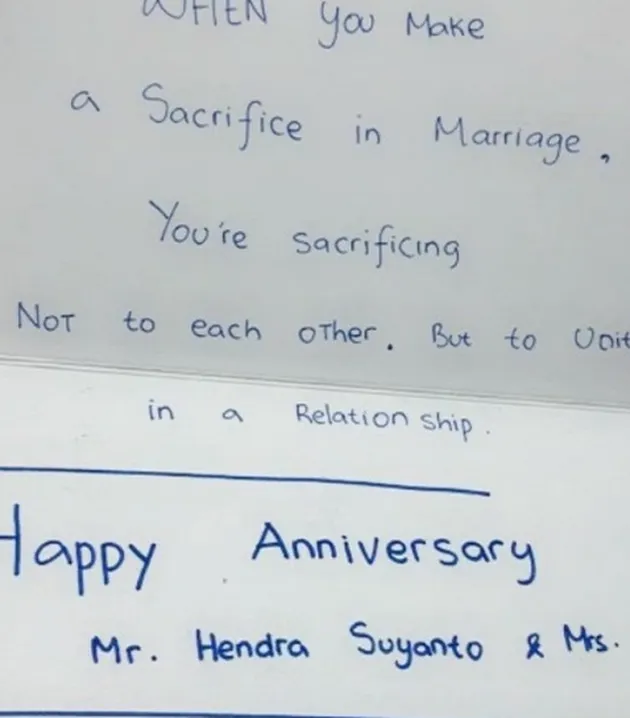 WHEN you Make
a Sacrifice in Marriage,
You're sacrificing
NOT to each other. But to Unit
in a Relationship.
Happy Anniversary
Mr. Hendra Suyanto & Mrs.